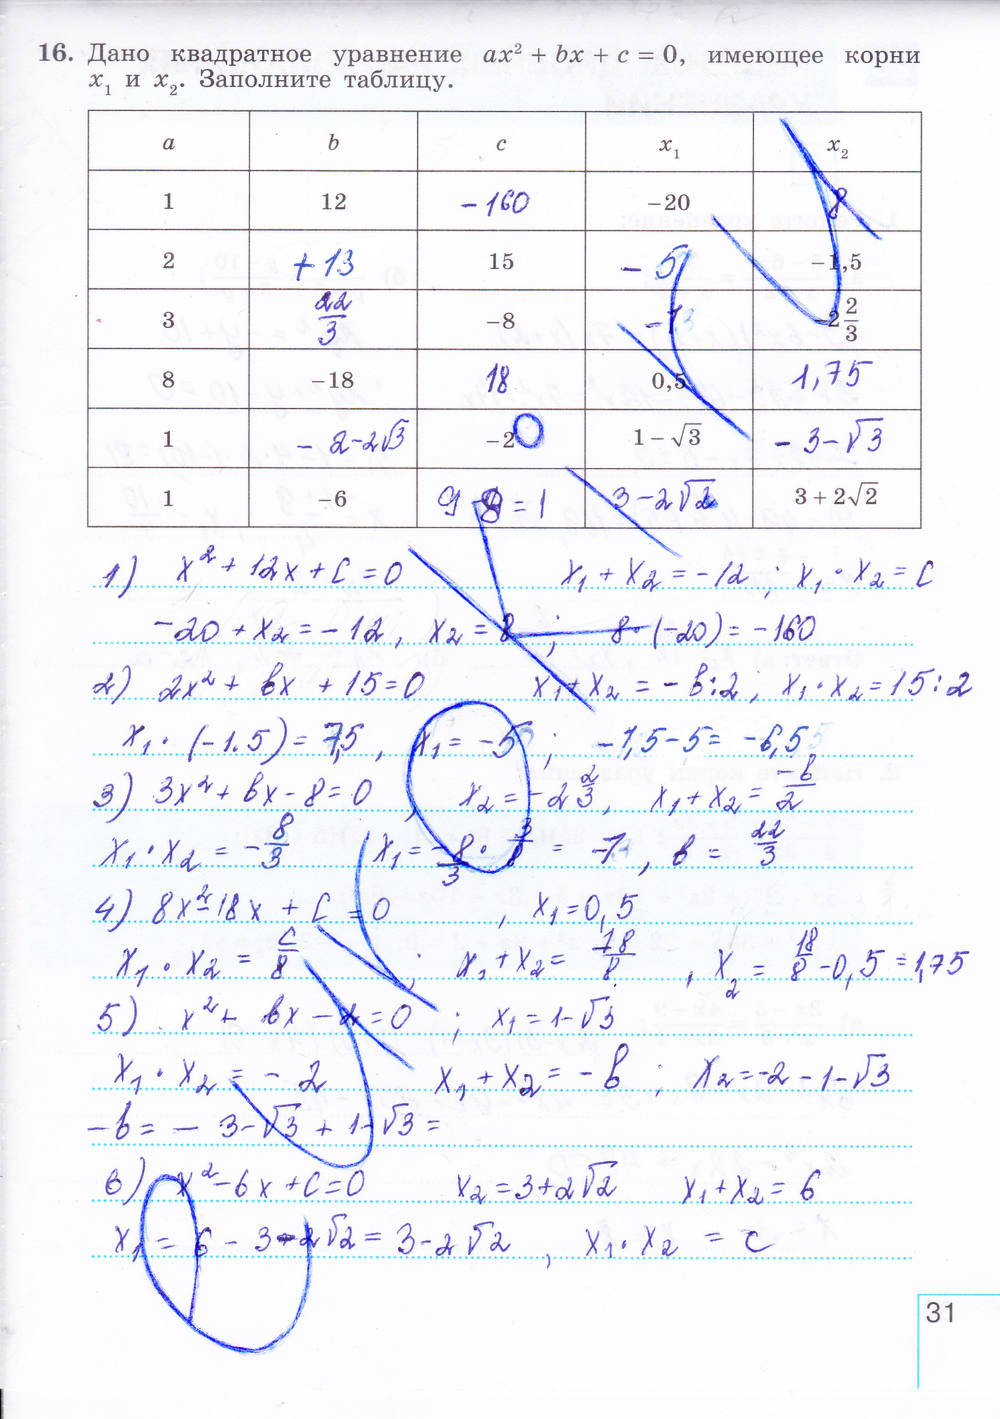 16. Дано квадратное уравнение ax² + bx + c = 0, имеющее корни
x₁ и x₂. Заполните таблицу.
a b c x₁ x₂
1 12 -160 -20 8
2 +13 15 -5 -1,5
3 22/3 -8 -1 -2 2/3
8 -18 18 0,5 1,75
1 -2-2√3 -2 1-√3 -3-√3
1 -6 9-8=1 3-2√2 3+2√2
1) x²+12x+c=0 x₁+x₂=-12; x₁·x₂=c
-20+x₂=-12, x₂=8; 8·(-20)=-160
2) 2x²+bx+15=0 x₁+x₂=-b:2; x₁·x₂=15:2
x₁·(-1.5)=7,5, x₁=-5; -1,5-5=-6,5
3) 3x²+bx-8=0, x₂=-2 2/3, x₁+x₂=-b/2
x₁·x₂=-8/3 x₁=-8/3·3/8=-1, b=22/3
4) 8x²-18x+c=0, x₁=0,5
x₁·x₂=c/8; x₁+x₂=18/8, x₂=18/8-0,5=1,75
5) x²+bx-2=0; x₁=1-√3
x₁·x₂=-2 x₁+x₂=-b; x₂=-2-1-√3
-b=-3-√3+1-√3=
6) x²-6x+c=0 x₂=3+2√2 x₁+x₂=6
x₁=6-3-2√2=3-2√2, x₁·x₂=c
31